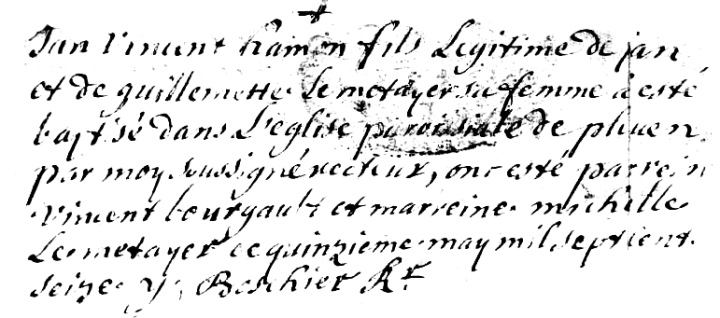 Jan Vincent hamon fils Legitime de jan
et de guillemette Le metayer sa femme a esté
baptisé dans L'eglise paroissiale de pluen
par moy soussigné recteur, ont esté parrein
vincent bourgault et marreine michelle
Le metayer ce quinzieme may mil sept cent
seize Beschier Rr